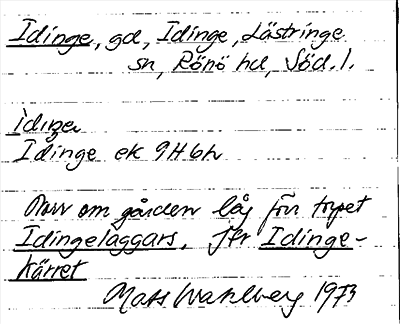 Idinge, gd, Idinge, Lästringe
sn, Rönö hd, Söd. l.
ìdıŋe
Idinge ek 9H6h
Norr om gården låg förr torpet
Idingelaggars, Jfr Idinge-
kärret
Mats Wahlberg 1973